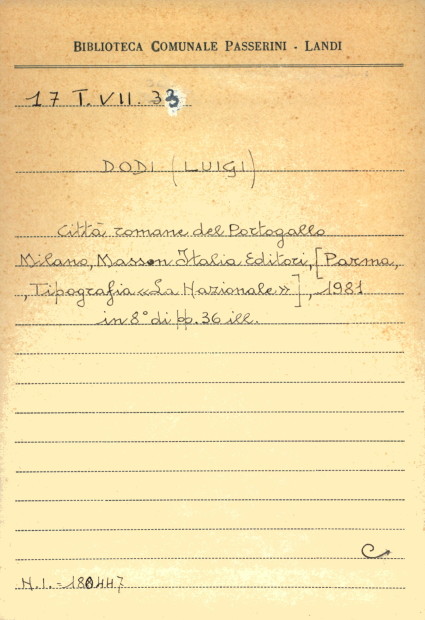 BIBLIOTECA COMUNALE PASSERINI - LANDI
17 T. VII. 33
DODI (LUIGI)
Città romane del Portogallo
Milano, Masson Italia Editori, [Parma,
, Tipografia «La Nazionale»], 1981
in 8° di pp. 36 ill.
N.I. = 180447